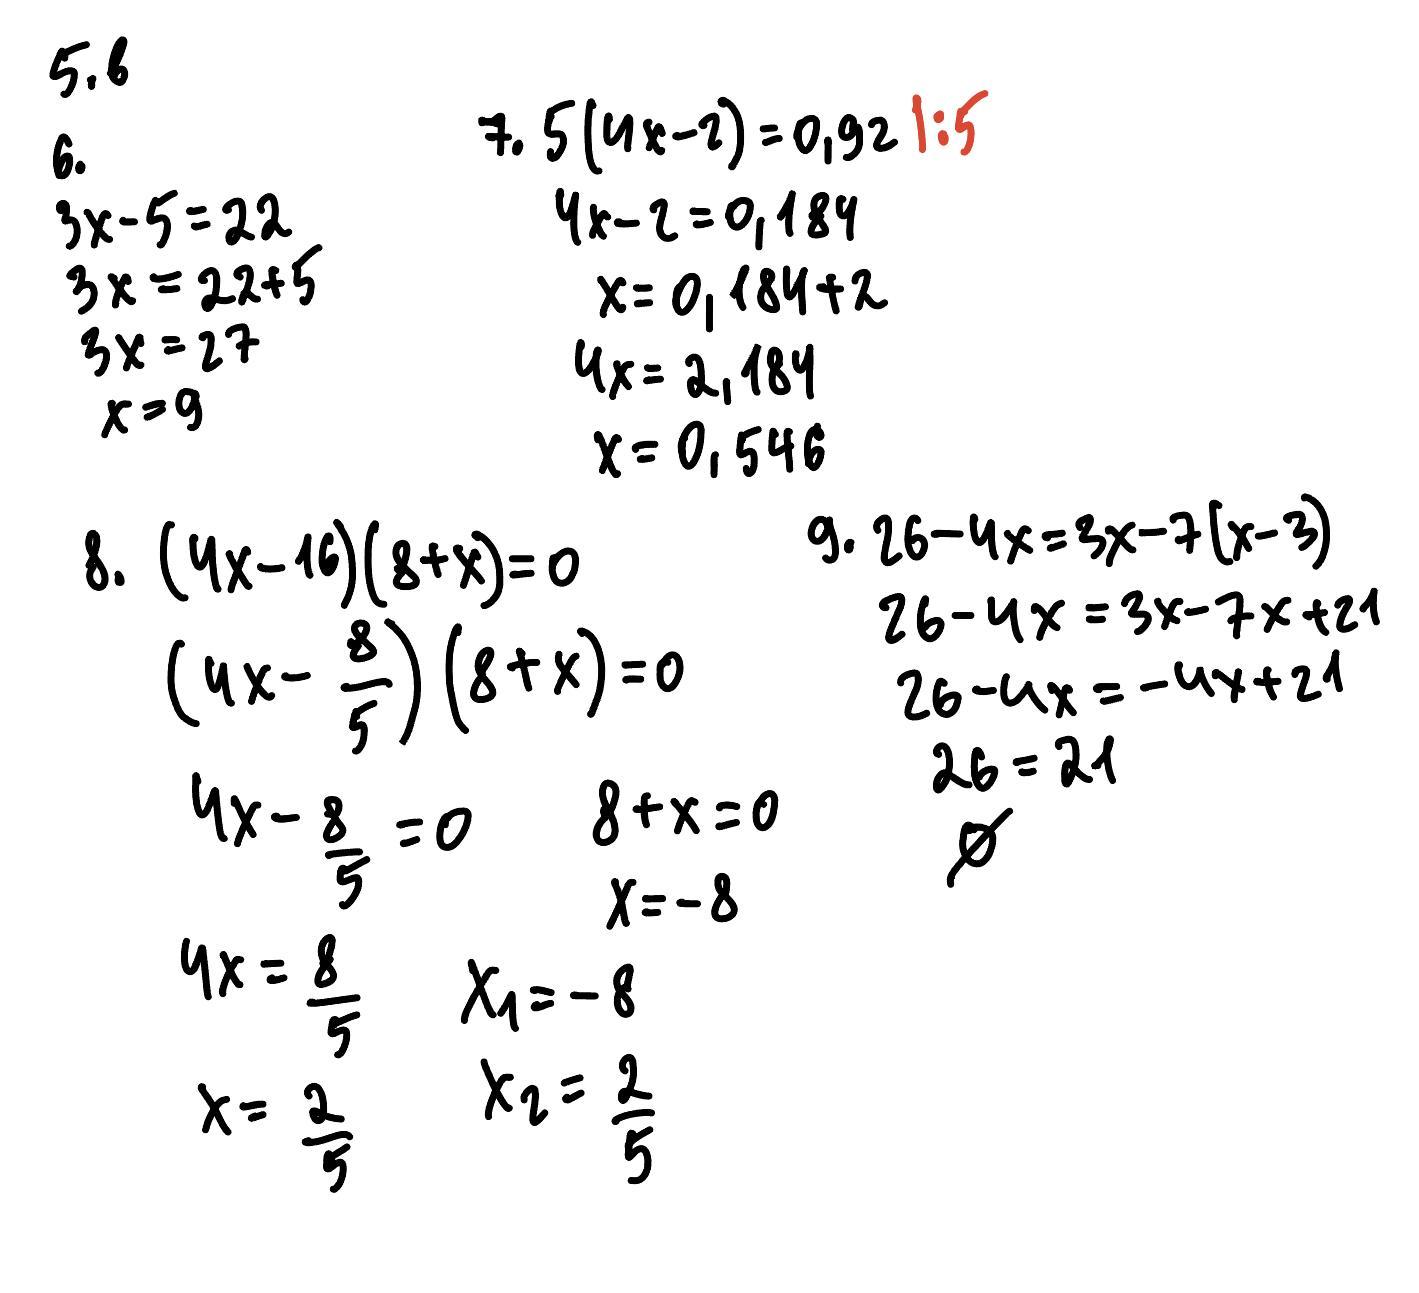 5.6
6.
3x-5=22
3x=22+5
3x=27
x=9
7. 5(4x-2)=0,92 |:5
4x-2=0,184
x=0,184+2
4x=2,184
x=0,546
8. (4x-16)(8+x)=0
(4x-8/5)(8+x)=0
4x-8/5=0
4x=8/5
x=2/5
8+x=0
x=-8
x₁=-8
x₂=2/5
9. 26-4x=3x-7(x-3)
26-4x=3x-7x+21
26-4x=-4x+21
26=21
Ø